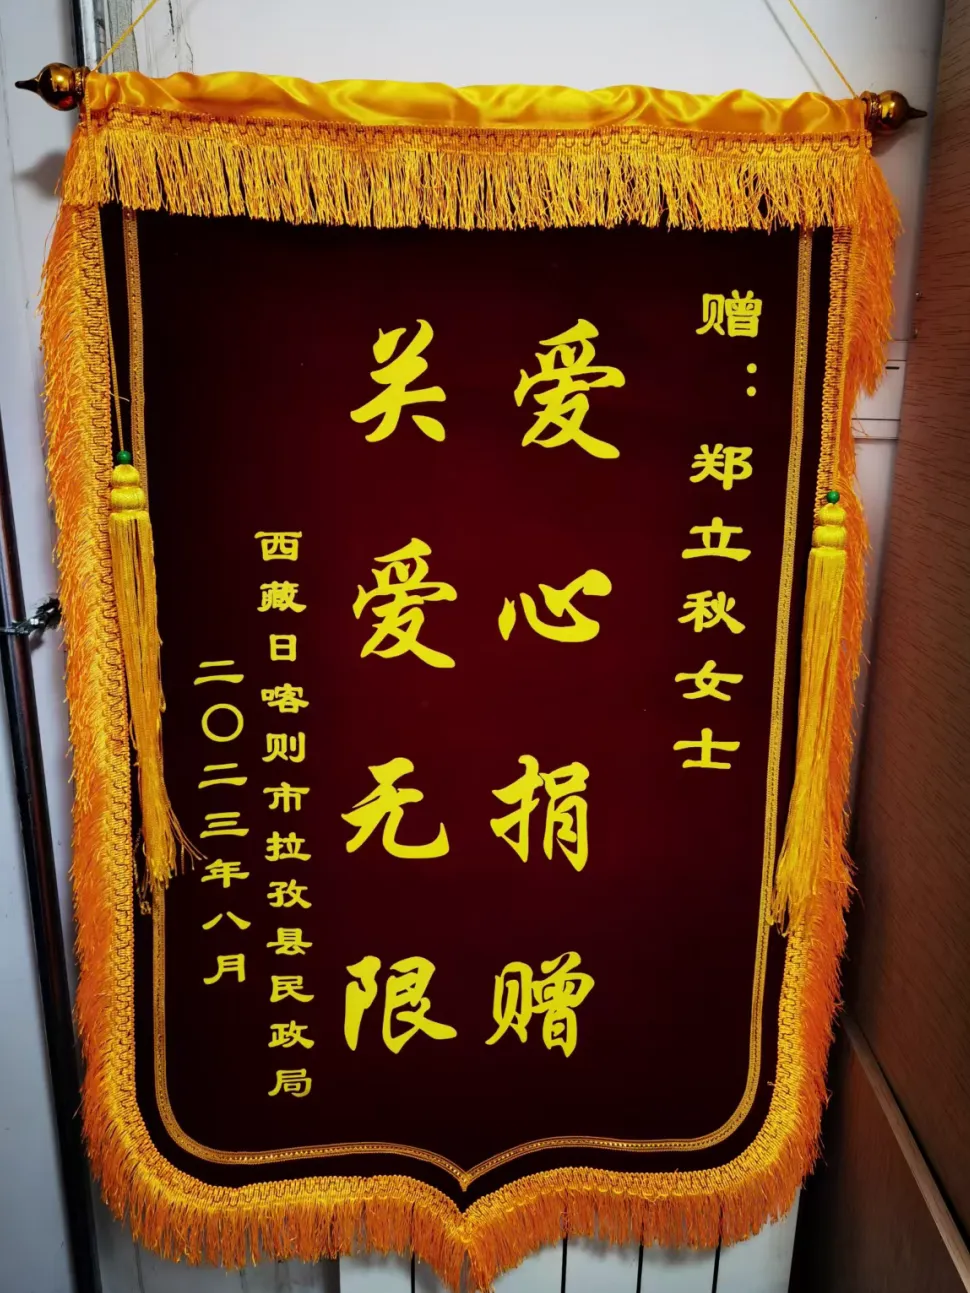 赠：郑立秋女士
爱心捐赠
关爱无限
西藏日喀则市拉孜县民政局
二〇二三年八月